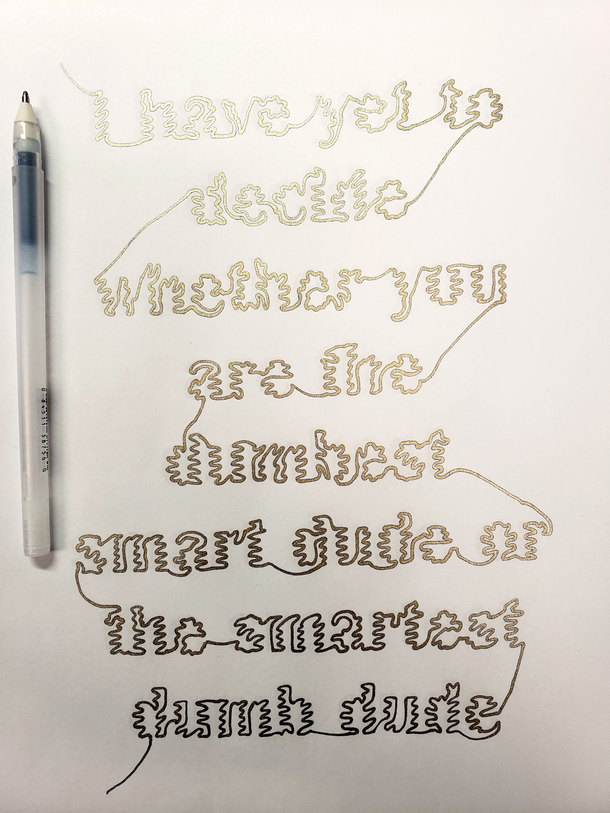 I have yet to
decide
whether you
are the
dumbest
smart dude or
the smartest
dumb dude